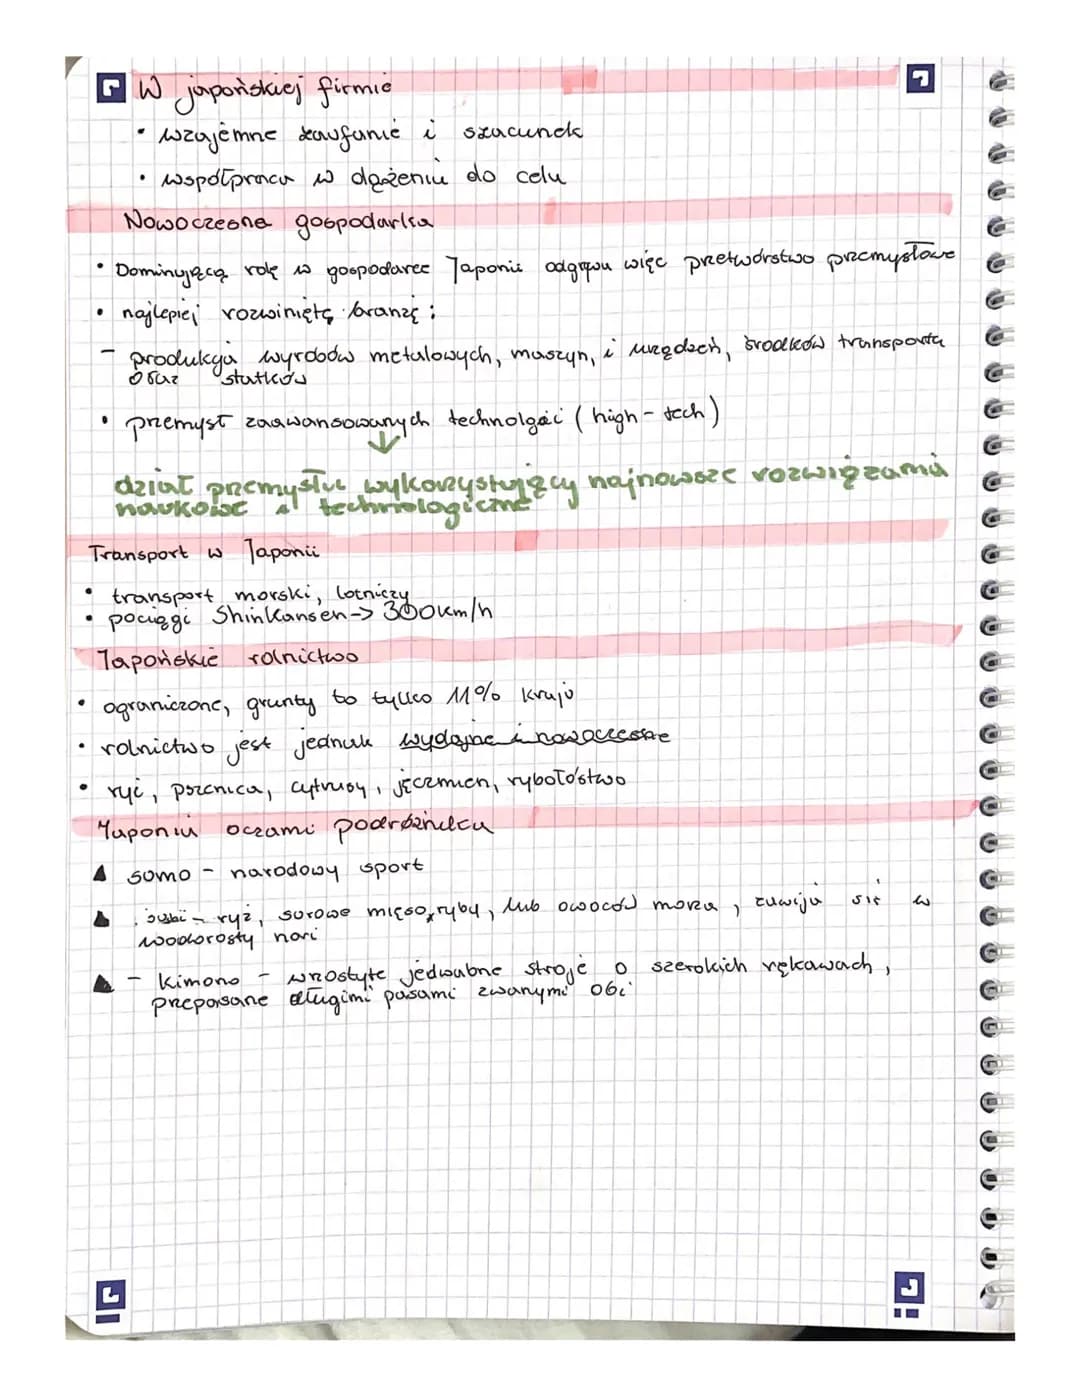 W japońskiej firmie
• wzajemne zaufanie i szacunek
• współpraca w dążeniu do celu
Nowoczesna gospodarka
• Dominującą rolę w gospodarce Japonii odgrywa więc przetwórstwo przemysłowe
• najlepiej rozwinięte branże :
- produkcja wyrobów metalowych, maszyn, i urządzeń, środków transportu
oraz statków
• przemysł zaawansowanych technolgii ( high - tech )
↓
dział przemysłu wykorzystujący najnowsze rozwiązania
naukowe i technologiczne
Transport w Japonii
• transport morski, lotniczy
• pociągi Shinkansen -> 300km/h
Japońskie rolnictwo
• ograniczone, grunty to tylko 11% kraju
• rolnictwo jest jednak wydajne i nowoczesne
• ryż, pszenica, cytrusy, jęczmień, rybołóstwo
Japonia oczami podróżnika
▲ somo - narodowy sport
▲ sushi - ryż, surowe mięso, ryby, lub owoców morza, zawija się w
wodorosty nori
▲ - Kimono - wzrostyte jedwabne stroje o szerokich rękawach,
przepasane długimi pasami zwanymi obi